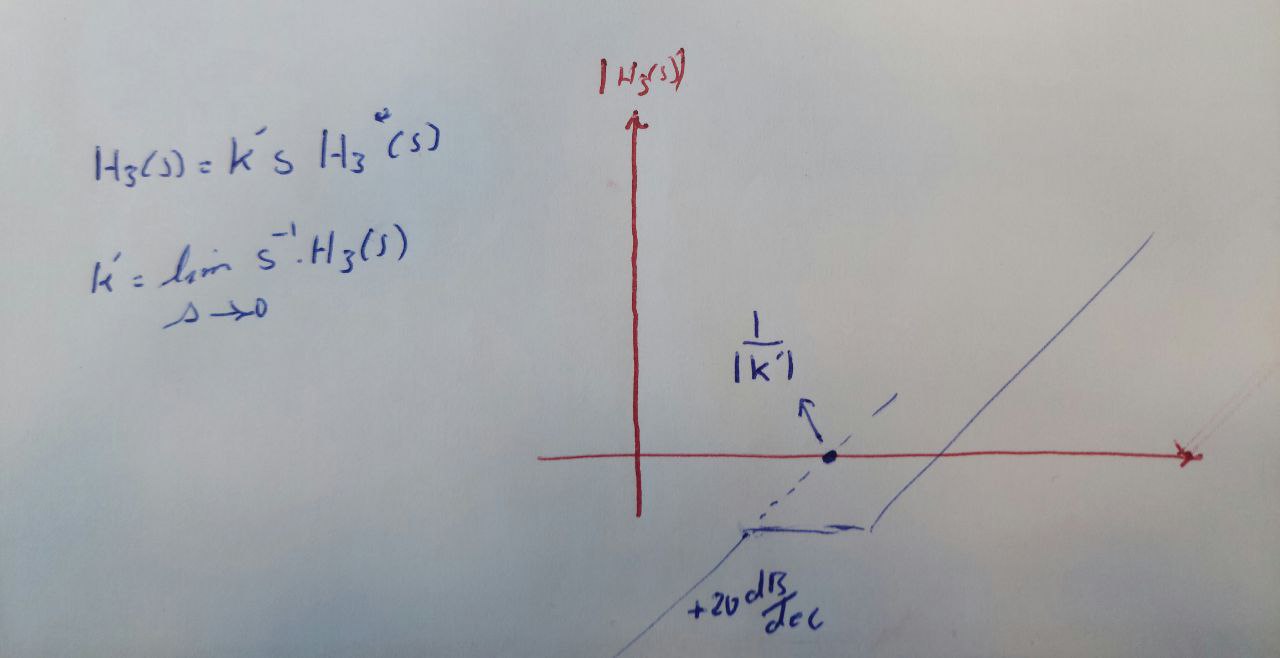 H₃(s) = k' s H₃*(s)
k' = lim s⁻¹ . H₃(s)
s → 0
|H₃(s)|
1
|k'|
+20 dB
dec